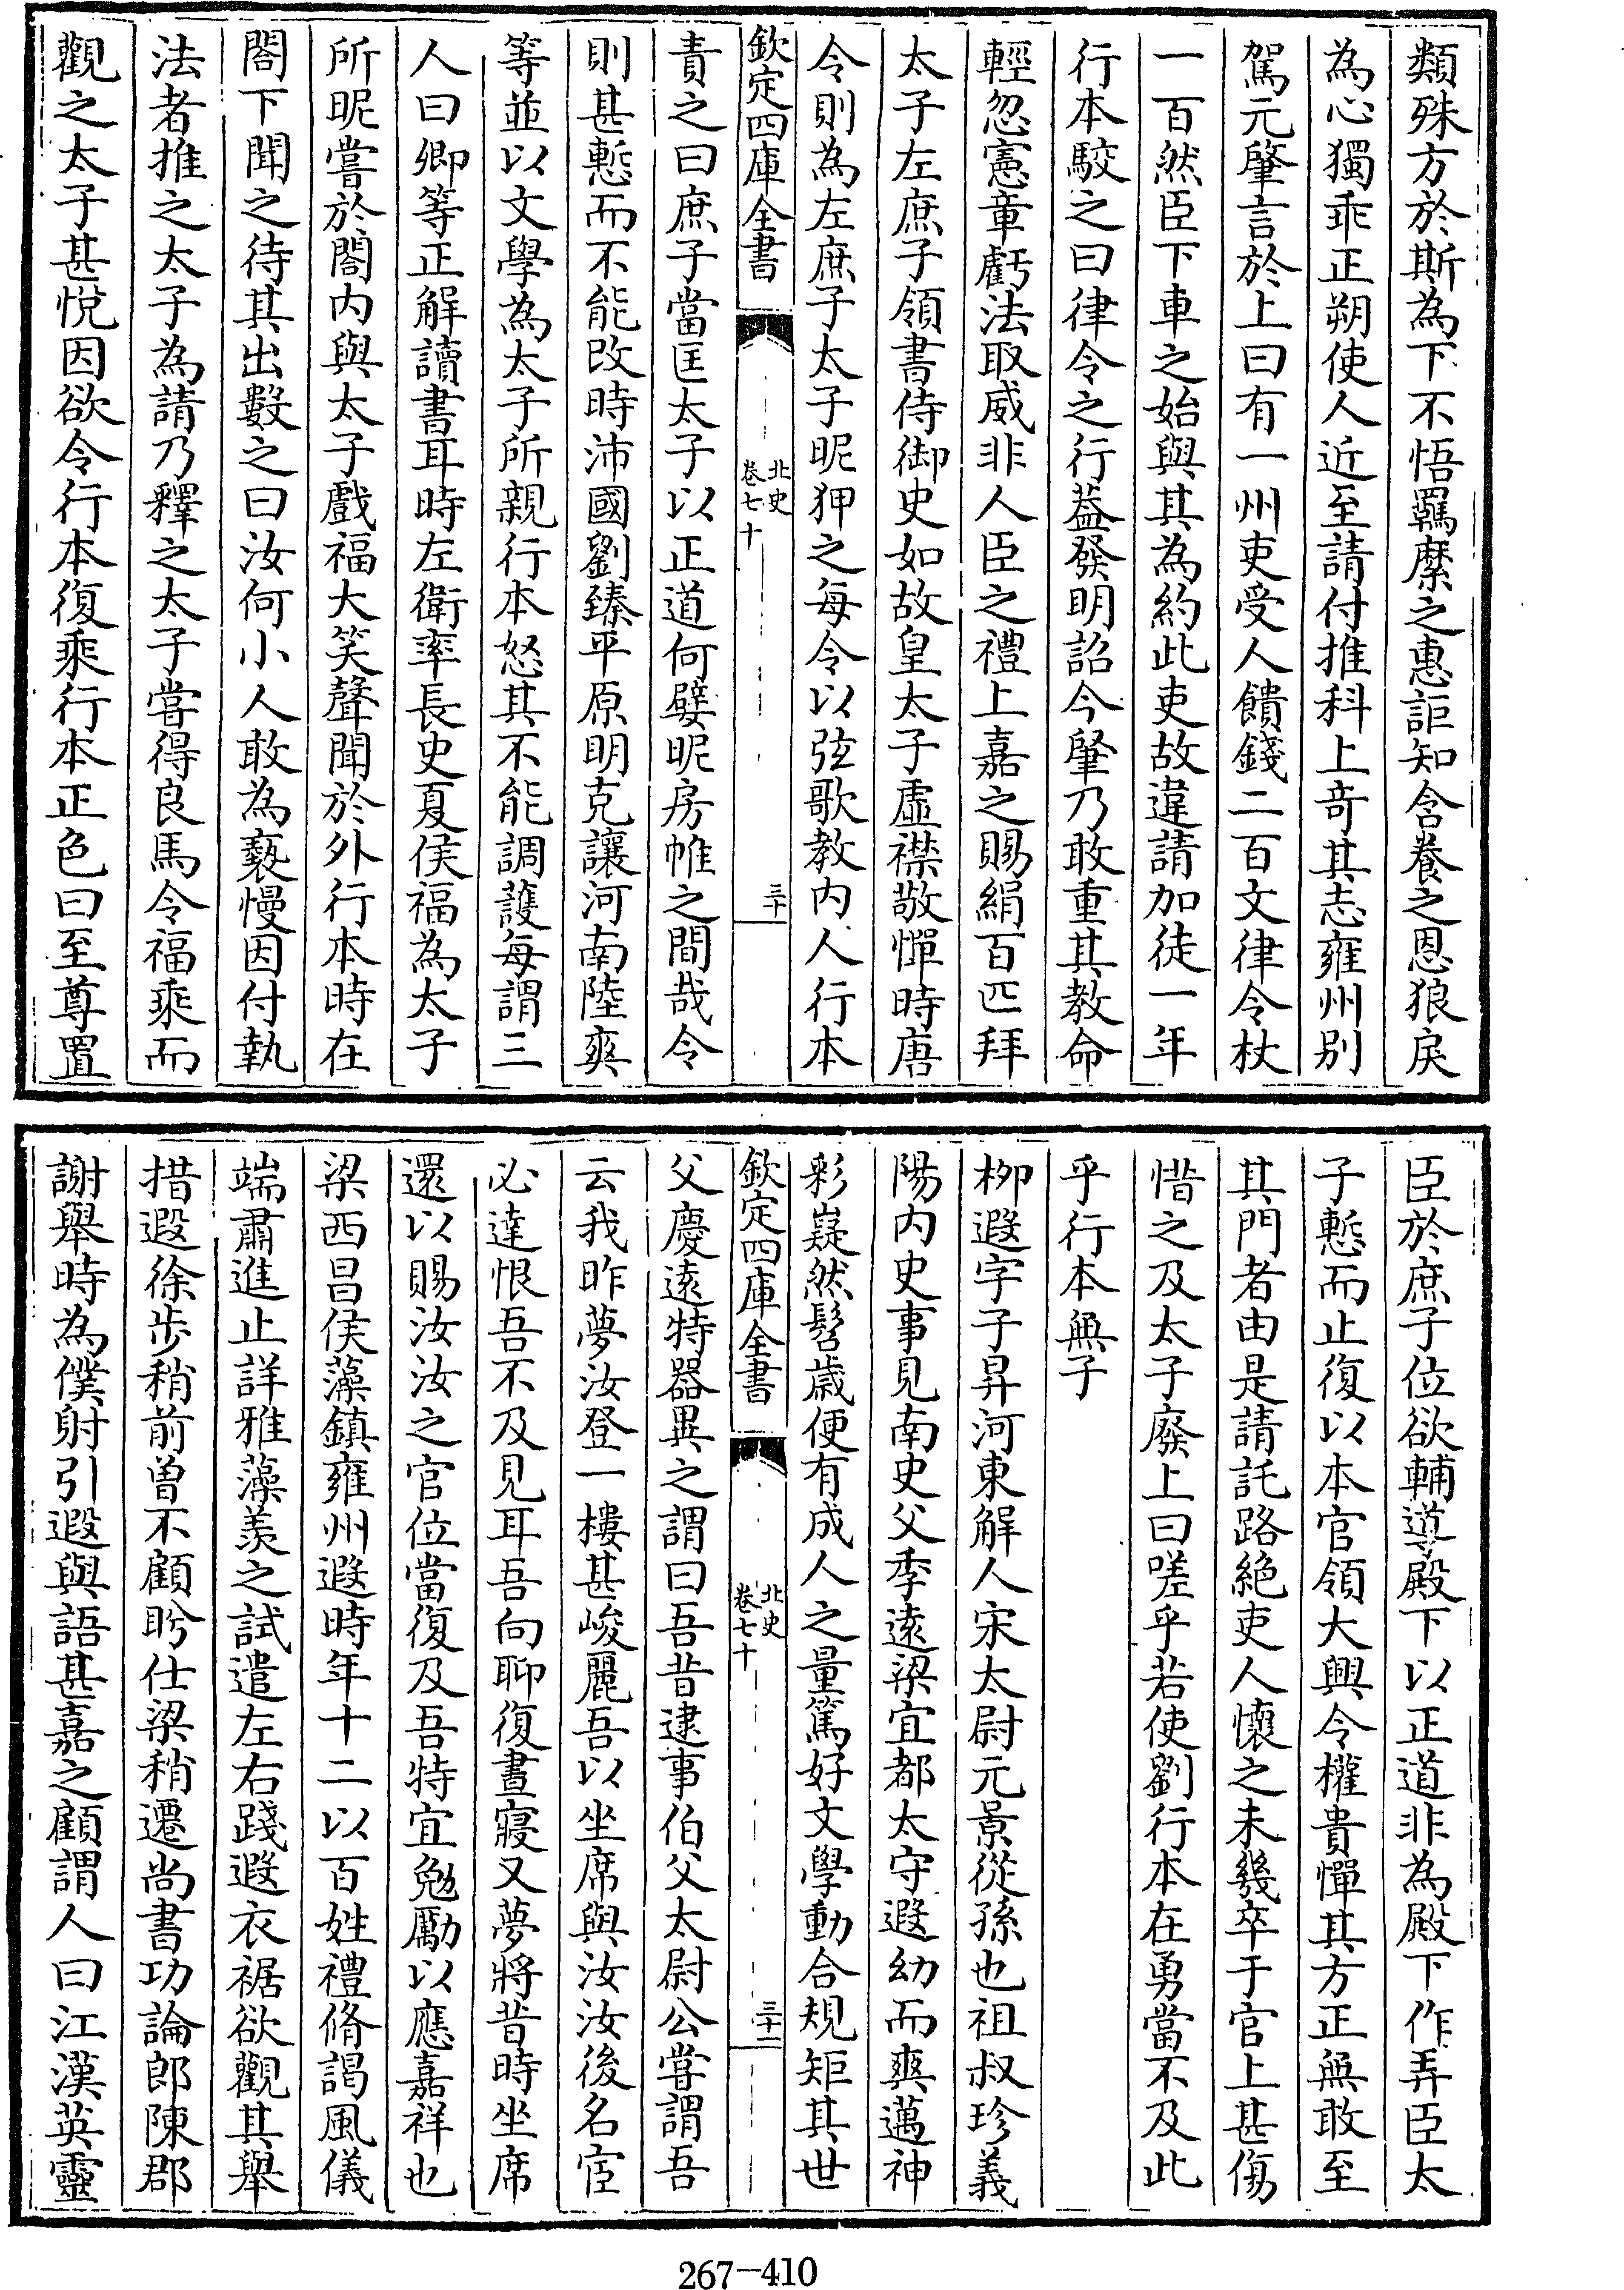 類殊方於斯為下不悟羈縻之惠詎知含養之恩狼戾
為心獨乖正朔使人近至請付推科上竒其志雍州別
駕元肇言於上曰有一州吏受人饋錢二百文律令杖
一百然臣下車之始與其為約此吏故違請加徒一年
行本駮之曰律令之行葢發明詔今肇乃敢重其教命
輕忽憲章虧法取威非人臣之禮上嘉之賜絹百匹拜
太子左庶子領書侍御史如故皇太子虛襟敬憚時唐
令則為左庶子太子昵狎之每令以弦歌教内人行本
欽定四庫全書
北史
卷七十
三十
責之曰庶子當匡太子以正道何嬖昵房帷之間哉令
則甚慙而不能改時沛國劉臻平原明克讓河南陸爽
等並以文學為太子所親行本怒其不能調護每謂三
人曰卿等正解讀書耳時左衛率長史夏侯福為太子
所昵嘗於閤内與太子戲福大笑聲聞於外行本時在
閤下聞之待其出數之曰汝何小人敢為褻慢因付執
法者推之太子為請乃釋之太子嘗得良馬令福乘而
觀之太子甚悅因欲令行本復乘行本正色曰至尊置
臣於庶子位欲輔導殿下以正道非為殿下作弄臣太
子慙而止復以本官領大興令權貴憚其方正無敢至
其門者由是請託路絶吏人懷之未幾卒于官上甚傷
惜之及太子廢上曰嗟乎若使劉行本在勇當不及此
乎行本無子
柳遐字子昇河東解人宋太尉元景從孫也祖叔珍義
陽内史事見南史父季逺梁宜都太守遐幼而爽邁神
彩嶷然髫歲便有成人之量篤好文學動合規矩其世
欽定四庫全書
北史
卷七十
三十一
父慶逺特器異之謂曰吾昔逮事伯父太尉公嘗謂吾
云我昨夢汝登一樓甚峻麗吾以坐席與汝汝後名宦
必達恨吾不及見耳吾向聊復晝寢又夢將昔時坐席
還以賜汝汝之官位當復及吾特宜勉勵以應嘉祥也
梁西昌侯藻鎮雍州遐時年十二以百姓禮脩謁風儀
端肅進止詳雅藻羨之試遣左右踐遐衣裾欲觀其舉
措遐徐步稍前曾不顧盻仕梁稍遷尚書功論郎陳郡
謝舉時為僕射引遐與語甚嘉之顧謂人曰江漢英靈
267-410